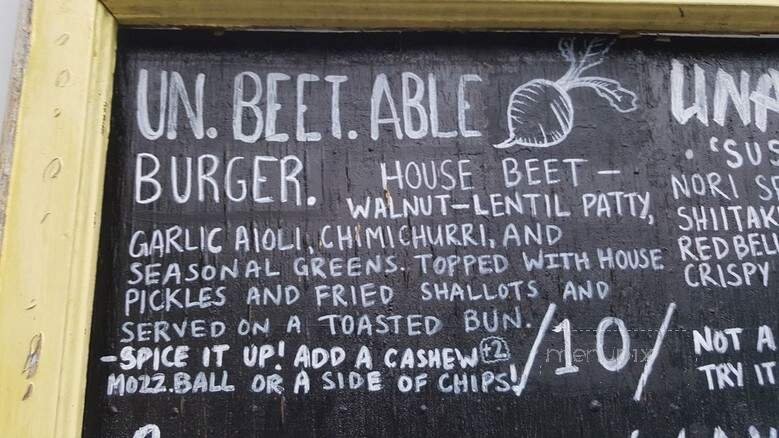 UN. BEET. ABLE
BURGER. HOUSE BEET-
WALNUT-LENTIL PATTY,
GARLIC AIOLI, CHIMICHURRI, AND
SEASONAL GREENS. TOPPED WITH HOUSE
PICKLES AND FRIED SHALLOTS AND
SERVED ON A TOASTED BUN.
-SPICE IT UP! ADD A CASHEW +2
MOZZ. BALL OR A SIDE OF CHIPS!
/10/
menupix
• 'SUS
NORI
RED BEL
CRISPY
NOT A
TRY IT